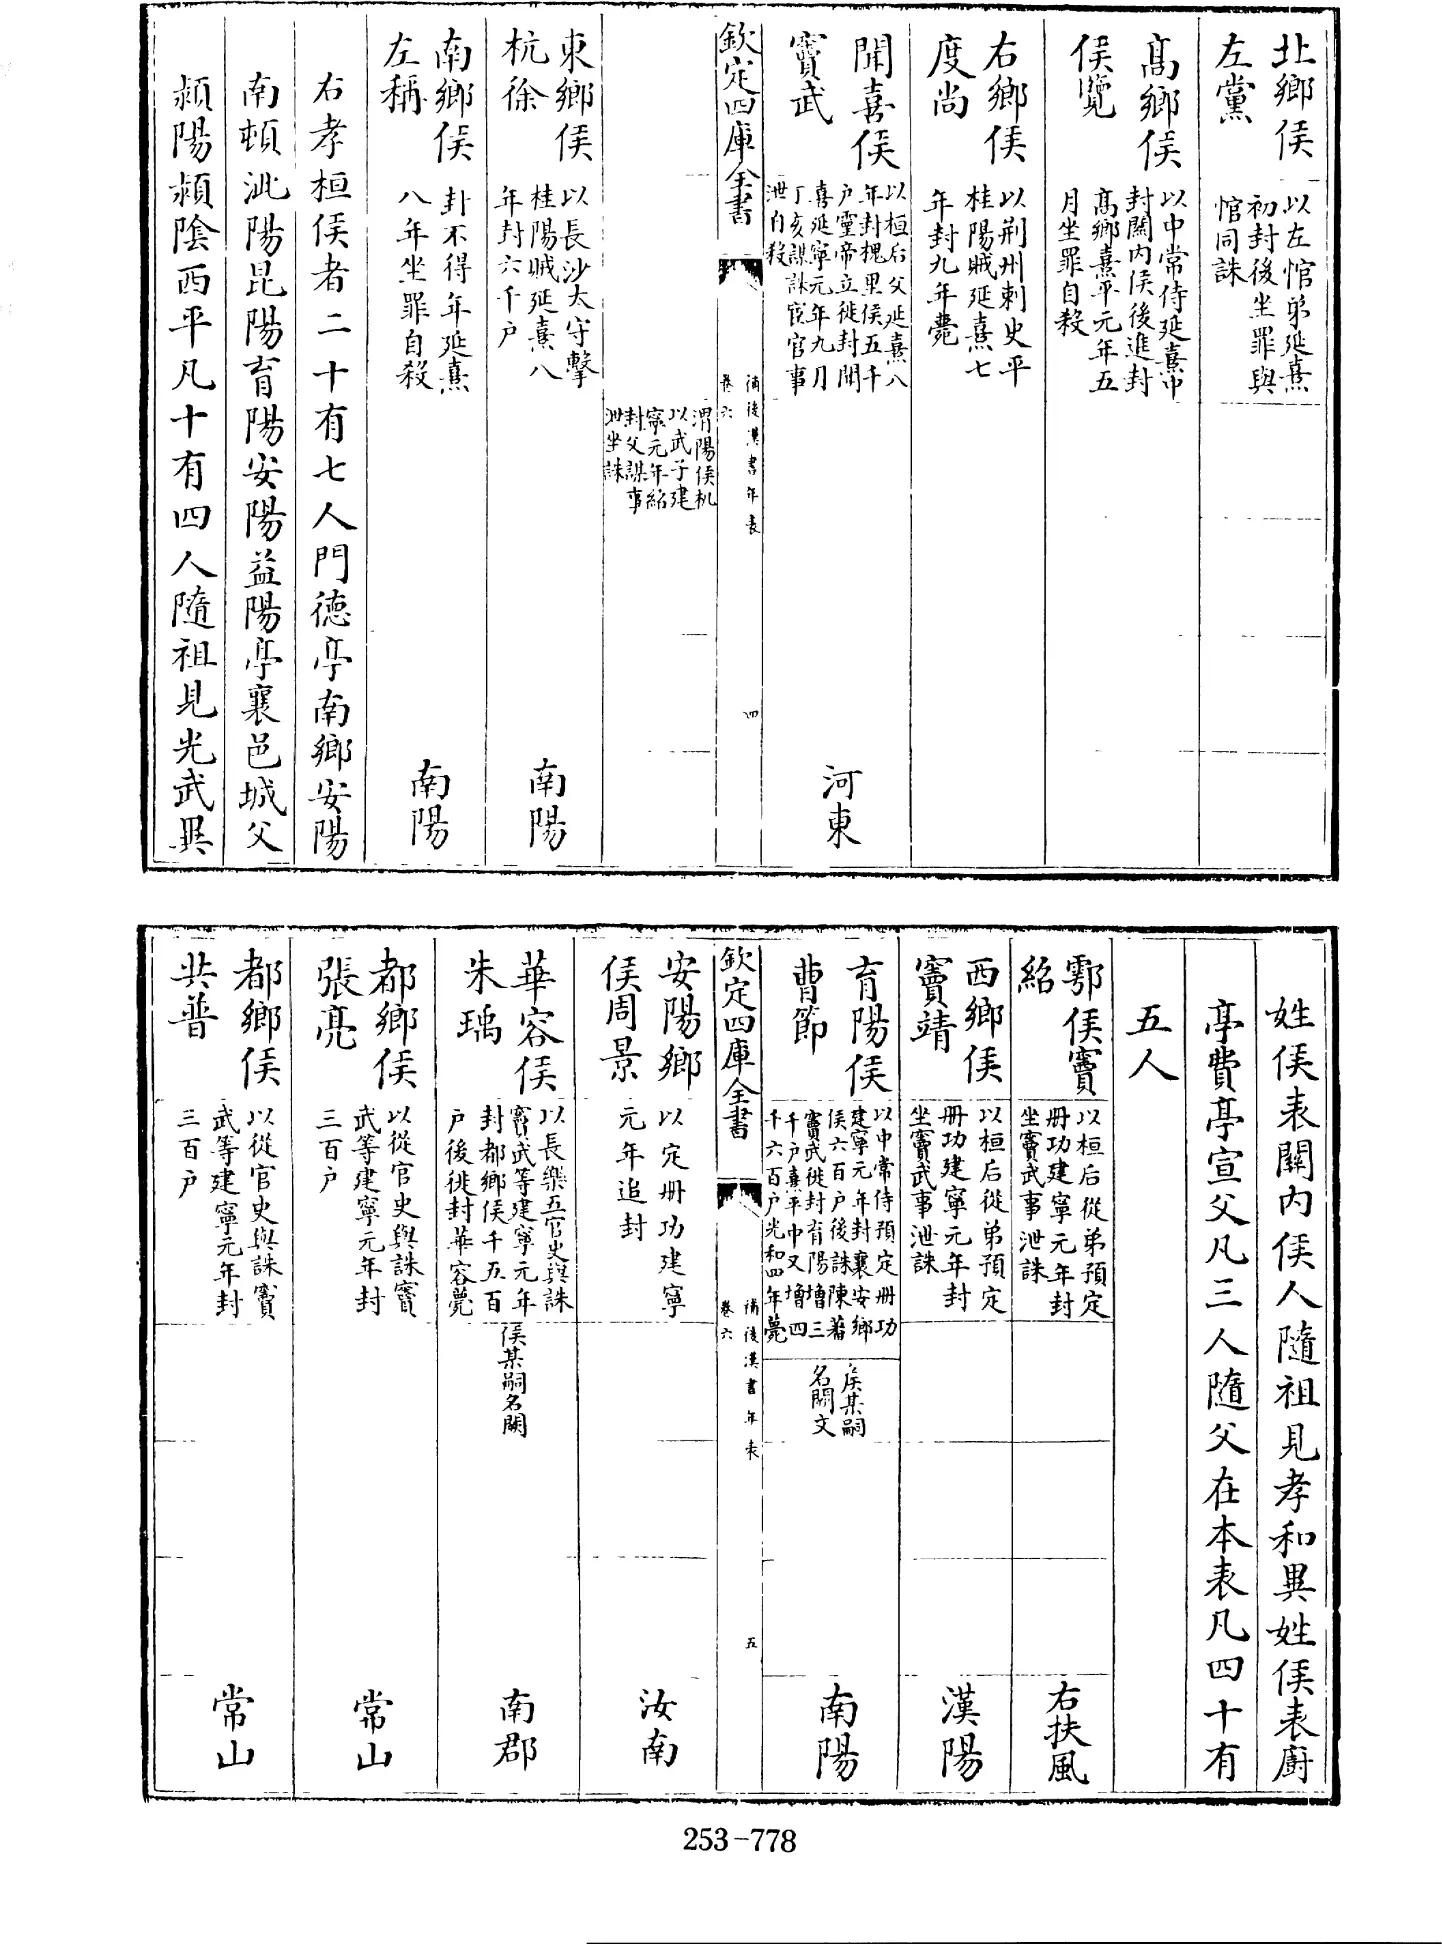 北鄉侯
左黨
以左悺弟延熹
初封後坐罪與
悺同誅
髙鄉侯
侯覽
以中常侍延熹中
封關内侯後進封
髙鄉熹平元年五
月坐罪自殺
右鄉侯
度尚
以荆州剌史平
桂陽賊延熹七
年封九年薨
聞喜侯
竇武
以桓后父延熹八
年封槐里侯五千
户靈帝立徙封聞
喜延寧元年九月
丁亥謀誅宦官事
泄自殺
河東
欽定四庫全書
補後漢書年表
卷六
四
渭陽侯机
以武子建
寧元年紹
封父謀事
泄坐誅
東鄉侯
杭徐
以長沙太守擊
桂陽賊延熹八
年封六千户
南陽
南鄉侯
左稱
封不得年延熹
八年坐罪自殺
南陽
右孝桓侯者二十有七人門德亭南鄉安陽
南頓沘陽昆陽育陽安陽益陽亭襄邑城父
潁陽潁陰西平凡十有四人隨祖見光武異
姓侯表關内侯人隨祖見孝和異姓侯表廚
亭費亭宣父凡三人隨父在本表凡四十有
五人
鄠侯竇
紹
以桓后從弟預定
册功建寧元年封
坐竇武事泄誅
右扶風
西鄉侯
竇靖
以桓后從弟預定
册功建寧元年封
坐竇武事泄誅
漢陽
育陽侯
曹節
以中常侍預定册功
建寧元年封襄安鄉
侯六百户後誅陳蕃
竇武徙封育陽增三
千户熹平中又增四
千六百户光和四年薨
侯某嗣
名闕文
南陽
欽定四庫全書
補後漢書年表
卷六
五
安陽鄉
侯周景
以定册功建寧
元年追封
汝南
華容侯
朱瑀
以長樂五官史與誅
竇武等建寧元年
封都鄉侯千五百
户後徙封華容薨
侯某嗣名闕
南郡
都鄉侯
張亮
以從官史與誅竇
武等建寧元年封
三百户
常山
都鄉侯
共普
以從官史與誅竇
武等建寧元年封
三百户
常山
253-778